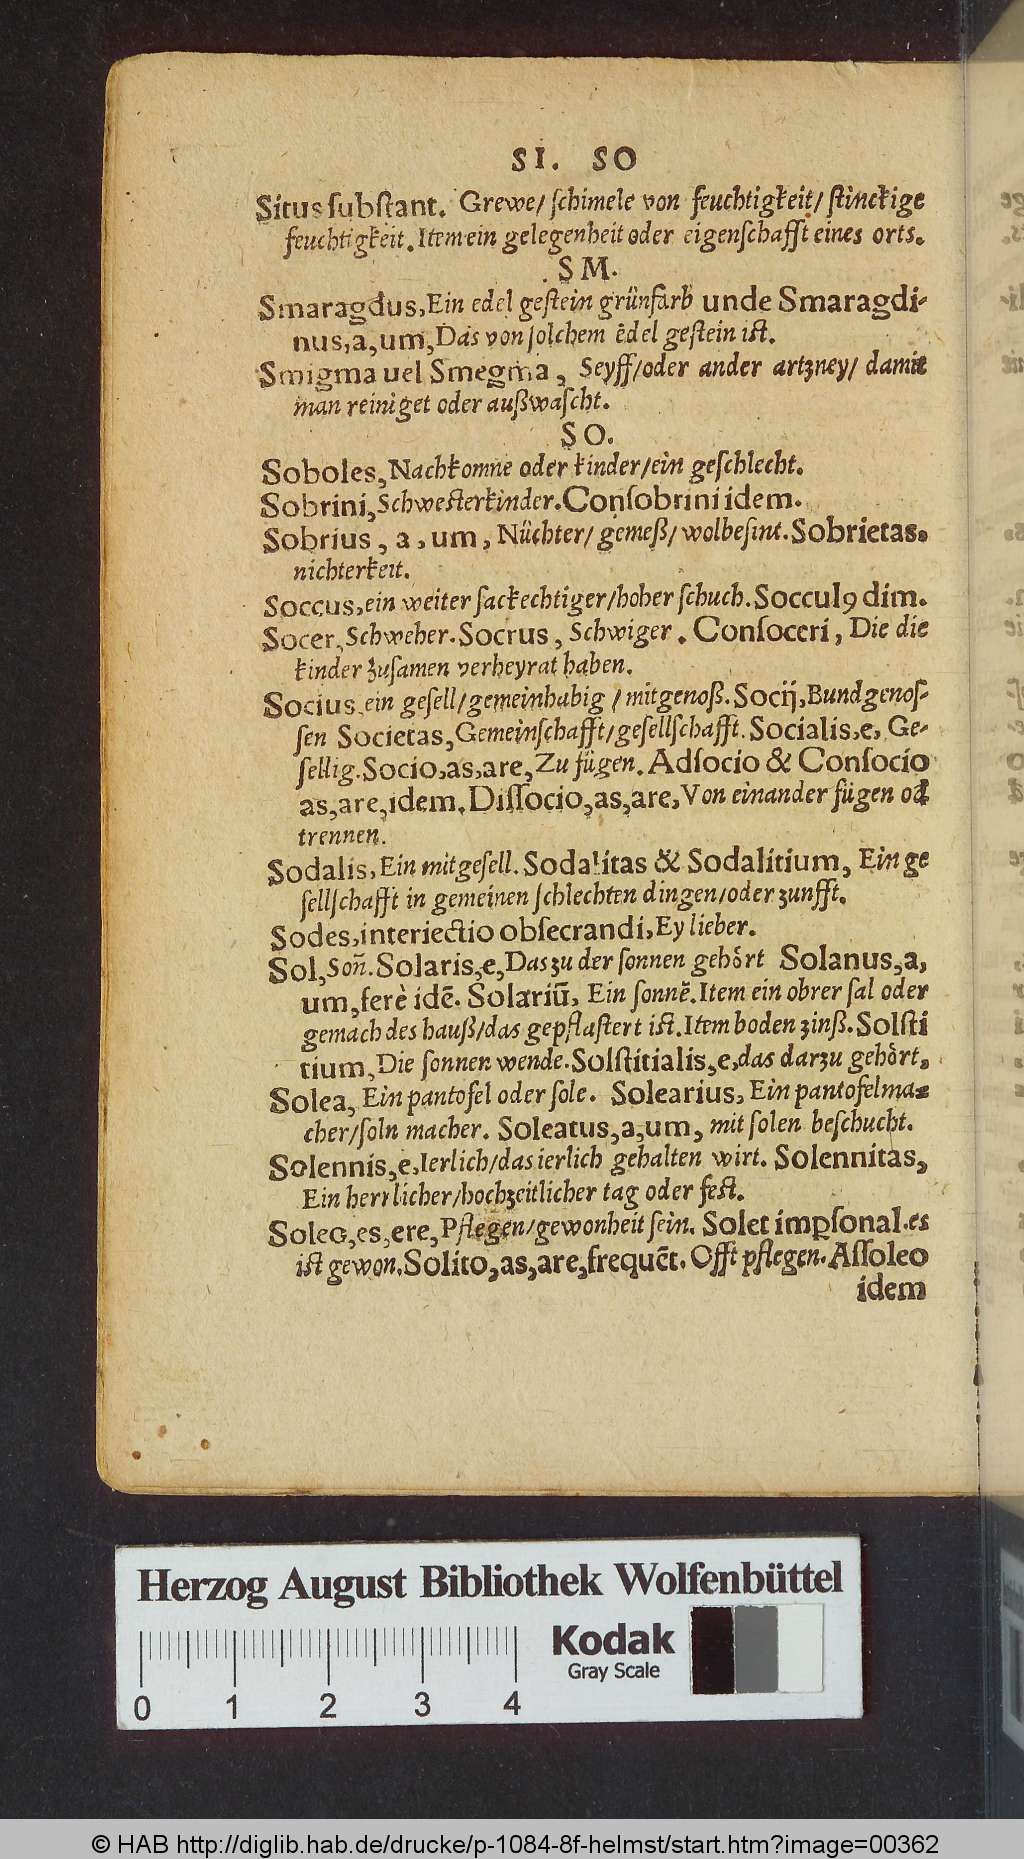 SI. SO
Situs ſubſtant. Grewe/ ſchimele von feuchtigkeit/ ſtinckige
feuchtigkeit. Item ein gelegenheit oder eigenſchafft eines orts.
SM.
Smaragdus, Ein edel geſtein grünfarb unde Smaragdi-
nus, a, um, Das von ſolchem edel geſtein iſt.
Smigma uel Smegma, Seyff/oder ander artzney/ damit
man reiniget oder außwaſcht.
SO.
Soboles, Nachkomne oder kinder/ein geſchlecht.
Sobrini, Schweſterkinder. Conſobrini idem.
Sobrius, a, um, Nüchter/ gemeß/ wolbeſint. Sobrietas.
nichterkeit.
Soccus, ein weiter ſackechtiger/hoher ſchuch. Socculꝰ dim.
Socer, Schweher. Socrus, Schwiger. Conſoceri, Die die
kinder zuſamen verheyrat haben.
Socius, ein geſell/gemeinhabig/ mitgenoß. Socij, Bundgenoſ-
ſen Societas, Gemeinſchafft/geſellſchafft. Socialis, e, Ge-
ſellig. Socio, as, are, Zu fügen. Adſocio & Conſocio
as, are, idem. Diſſocio, as, are, Von einander fügen od
trennen.
Sodalis, Ein mitgeſell. Sodalitas & Sodalitium, Ein ge
ſellſchafft in gemeinen ſchlechten dingen/oder zunfft.
Sodes, interiectio obſecrandi, Ey lieber.
Sol, Son̄. Solaris, e, Das zu der ſonnen gehört Solanus, a,
um, ferè idē. Solariū, Ein ſonnē. Item ein obrer ſal oder
gemach des hauß/das gepflaſtert iſt. Item boden zinß. Solſti
tium, Die ſonnen wende. Solſtitialis, e, das darzu gehört.
Solea, Ein pantofel oder ſole. Solearius, Ein pantofelma-
cher/ſoln macher. Soleatus, a, um, mit ſolen beſchucht.
Solennis, e, Ierlich/das ierlich gehalten wirt. Solennitas,
Ein herrlicher/hochzeitlicher tag oder feſt.
Soleo, es, ere, Pflegen/gewonheit ſein. Solet imꝑſonal. es
iſt gewon. Solito, as, are, frequēt. Offt pflegen. Aſſoleo
idem
Herzog August Bibliothek Wolfenbüttel
Kodak
Gray Scale
0 1 2 3 4
© HAB http://diglib.hab.de/drucke/p-1084-8f-helmst/start.htm?image=00362